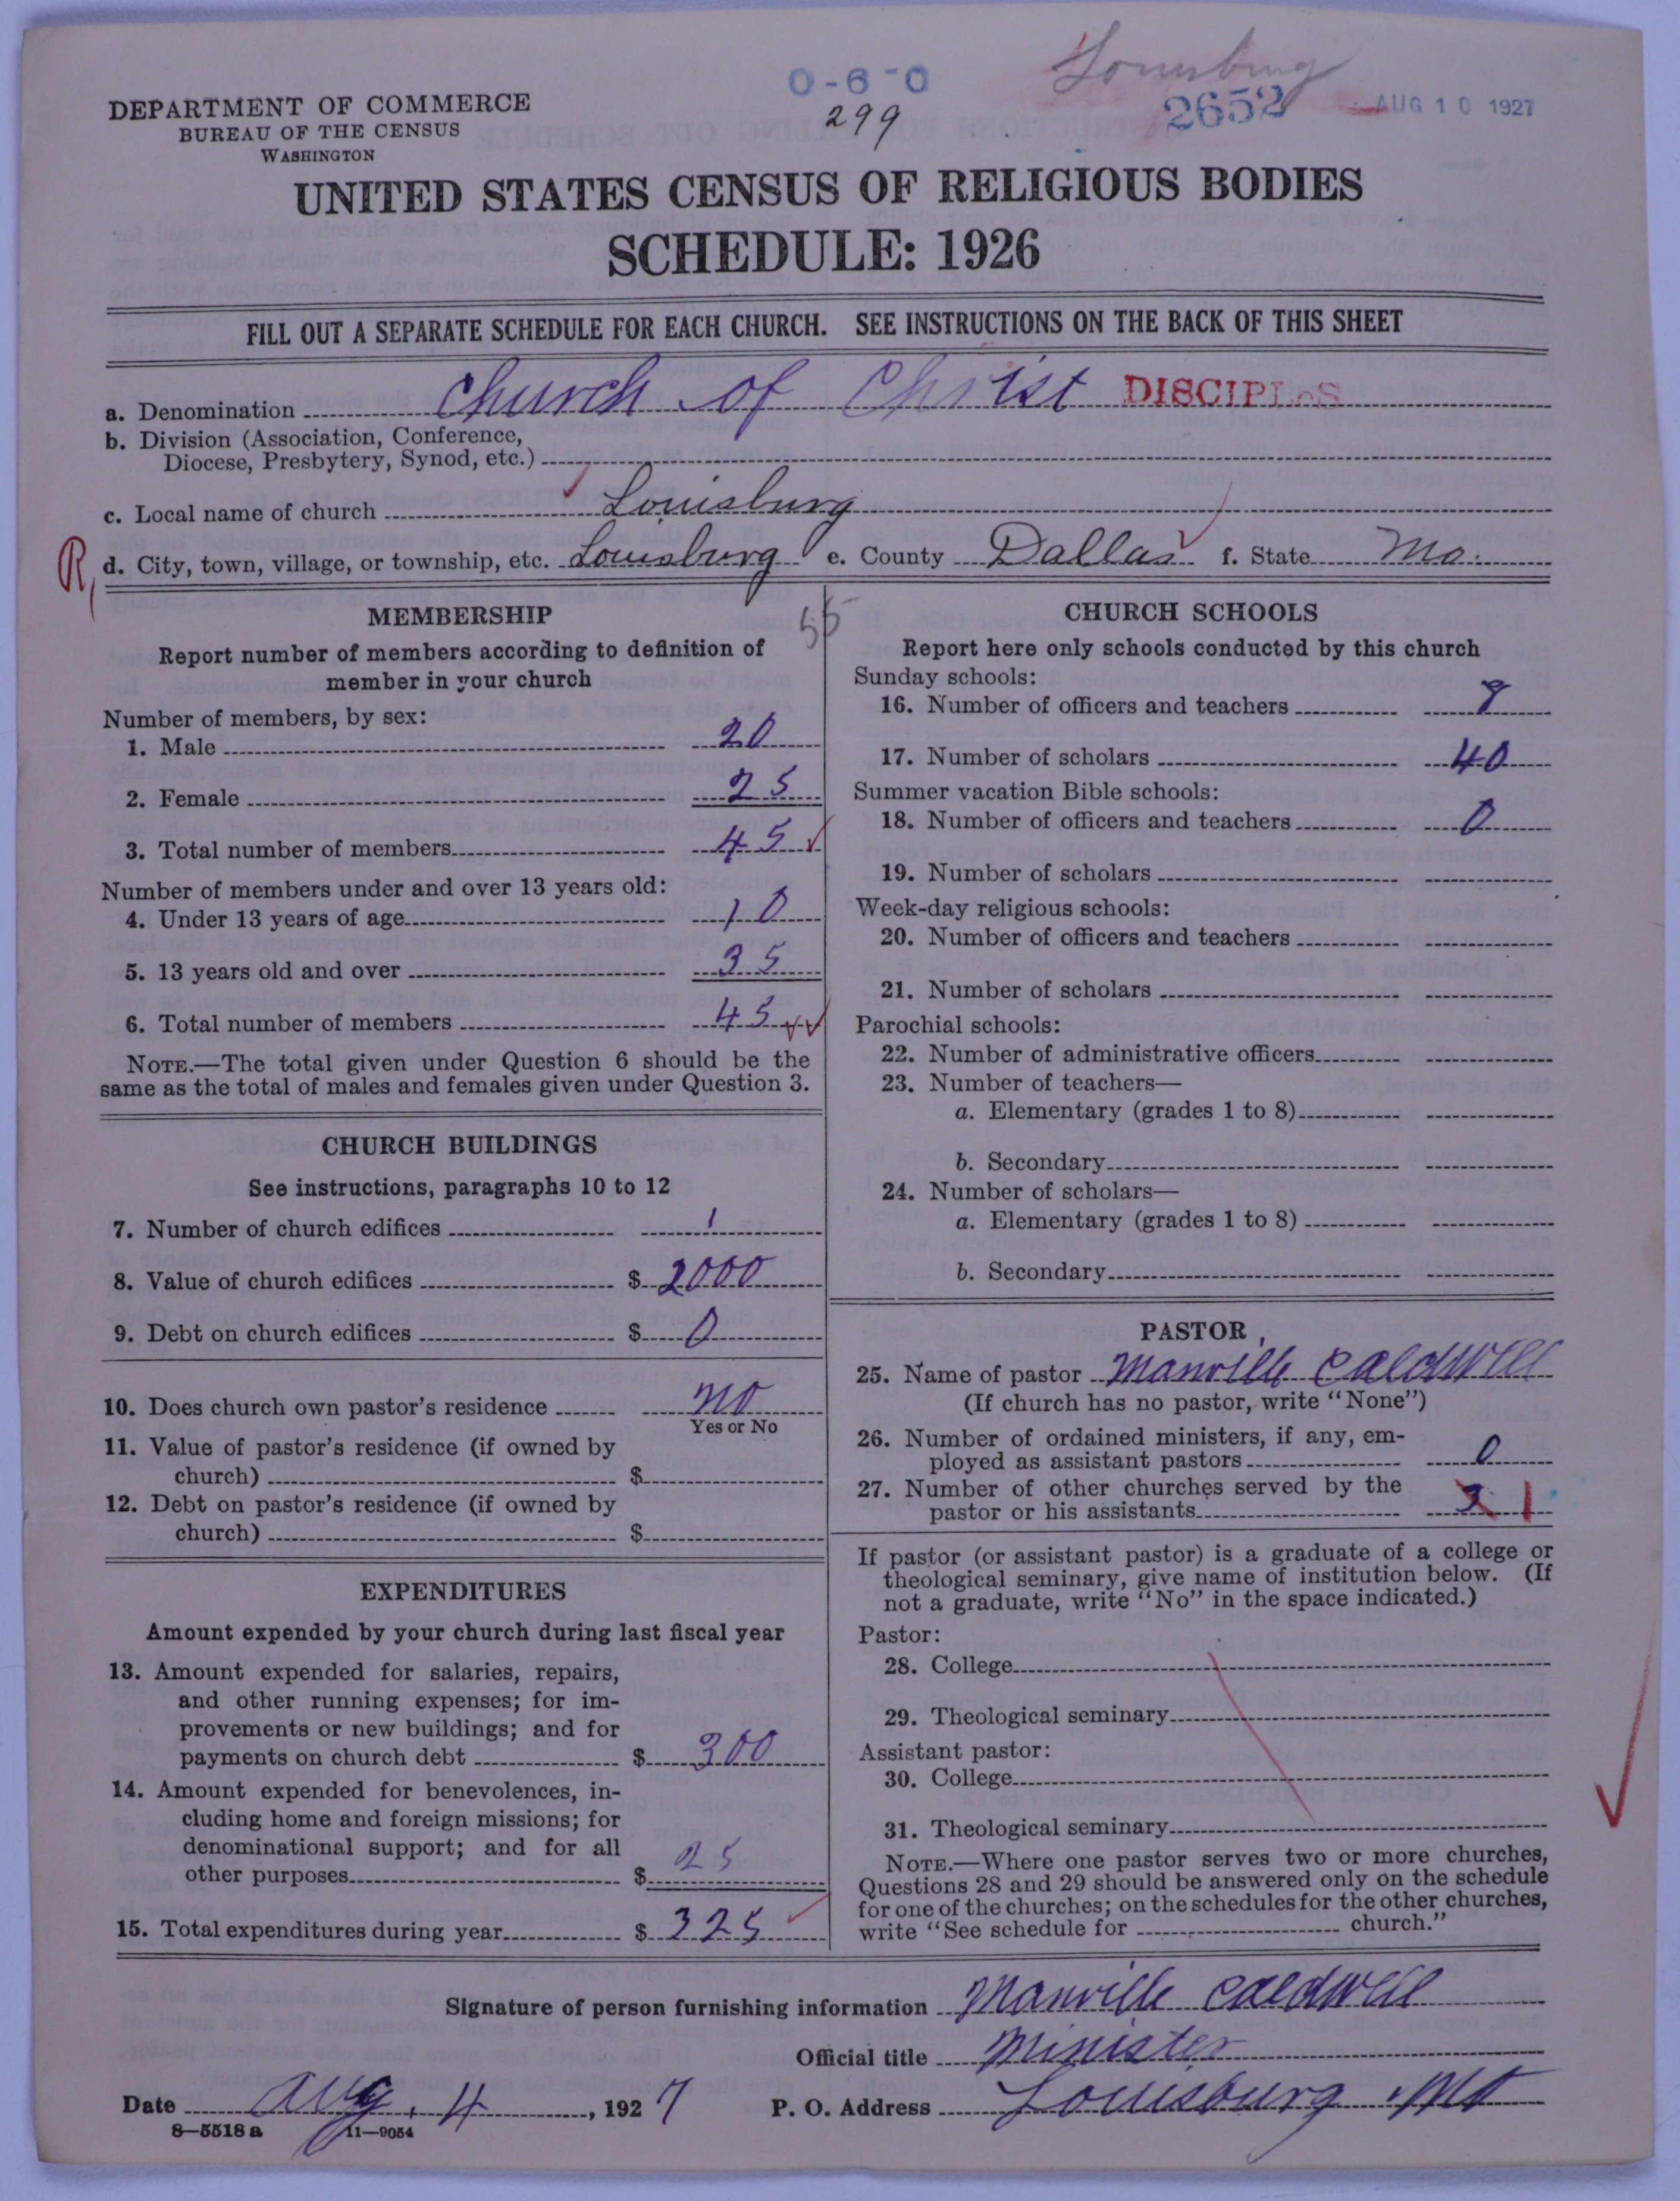 0-6-0
Louisburg
299
2652
AUG 10 1927
DEPARTMENT OF COMMERCE
BUREAU OF THE CENSUS
WASHINGTON
UNITED STATES CENSUS OF RELIGIOUS BODIES
SCHEDULE: 1926
FILL OUT A SEPARATE SCHEDULE FOR EACH CHURCH. SEE INSTRUCTIONS ON THE BACK OF THIS SHEET
a. Denomination Church of Christ DISCIPLES
b. Division (Association, Conference,
Diocese, Presbytery, Synod, etc.)
c. Local name of church Louisburg
R, d. City, town, village, or township, etc. Louisburg e. County Dallas f. State Mo.
MEMBERSHIP
55
Report number of members according to definition of
member in your church
Number of members, by sex:
1. Male 20
2. Female 25
3. Total number of members 45
Number of members under and over 13 years old:
4. Under 13 years of age 10
5. 13 years old and over 35
6. Total number of members 45
NOTE.—The total given under Question 6 should be the
same as the total of males and females given under Question 3.
CHURCH BUILDINGS
See instructions, paragraphs 10 to 12
7. Number of church edifices 1
8. Value of church edifices $ 2000
9. Debt on church edifices $ 0
10. Does church own pastor's residence no
Yes or No
11. Value of pastor's residence (if owned by
church) $
12. Debt on pastor's residence (if owned by
church) $
EXPENDITURES
Amount expended by your church during last fiscal year
13. Amount expended for salaries, repairs,
and other running expenses; for im-
provements or new buildings; and for
payments on church debt $ 300
14. Amount expended for benevolences, in-
cluding home and foreign missions; for
denominational support; and for all
other purposes $ 25
15. Total expenditures during year $ 325
CHURCH SCHOOLS
Report here only schools conducted by this church
Sunday schools:
16. Number of officers and teachers 8
17. Number of scholars 40
Summer vacation Bible schools:
18. Number of officers and teachers 0
19. Number of scholars
Week-day religious schools:
20. Number of officers and teachers
21. Number of scholars
Parochial schools:
22. Number of administrative officers
23. Number of teachers—
a. Elementary (grades 1 to 8)
b. Secondary
24. Number of scholars—
a. Elementary (grades 1 to 8)
b. Secondary
PASTOR
25. Name of pastor Manville Caldwell
(If church has no pastor, write "None")
26. Number of ordained ministers, if any, em-
ployed as assistant pastors 0
27. Number of other churches served by the
pastor or his assistants 3 1
If pastor (or assistant pastor) is a graduate of a college or
theological seminary, give name of institution below. (If
not a graduate, write "No" in the space indicated.)
Pastor:
28. College
29. Theological seminary
Assistant pastor:
30. College
31. Theological seminary
NOTE.—Where one pastor serves two or more churches,
Questions 28 and 29 should be answered only on the schedule
for one of the churches; on the schedules for the other churches,
write "See schedule for church."
Signature of person furnishing information Manville Caldwell
Official title Minister
Date Aug. 4, 1927 P. O. Address Louisburg, Mo
8—5518 a 11—9054